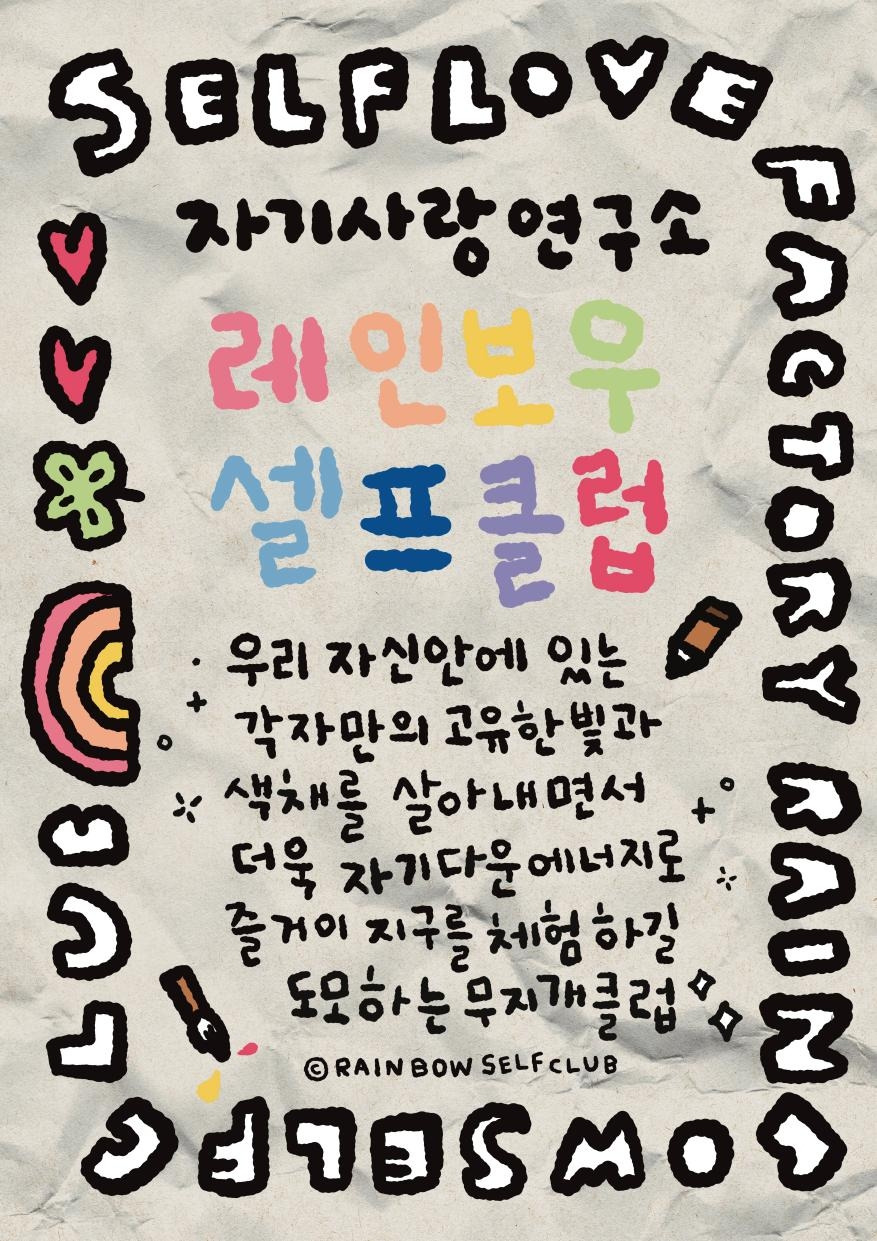 SELFLOVE
FACTORY RAIN
BOWSELFC
LUB
자기사랑 연구소
레인보우
셀프클럽
우리 자신안에 있는
각자만의 고유한 빛과
색채를 살아내면서
더욱 자기다운 에너지로
즐거이 지구를 체험하길
도모하는 무지개클럽
© RAINBOW SELF CLUB